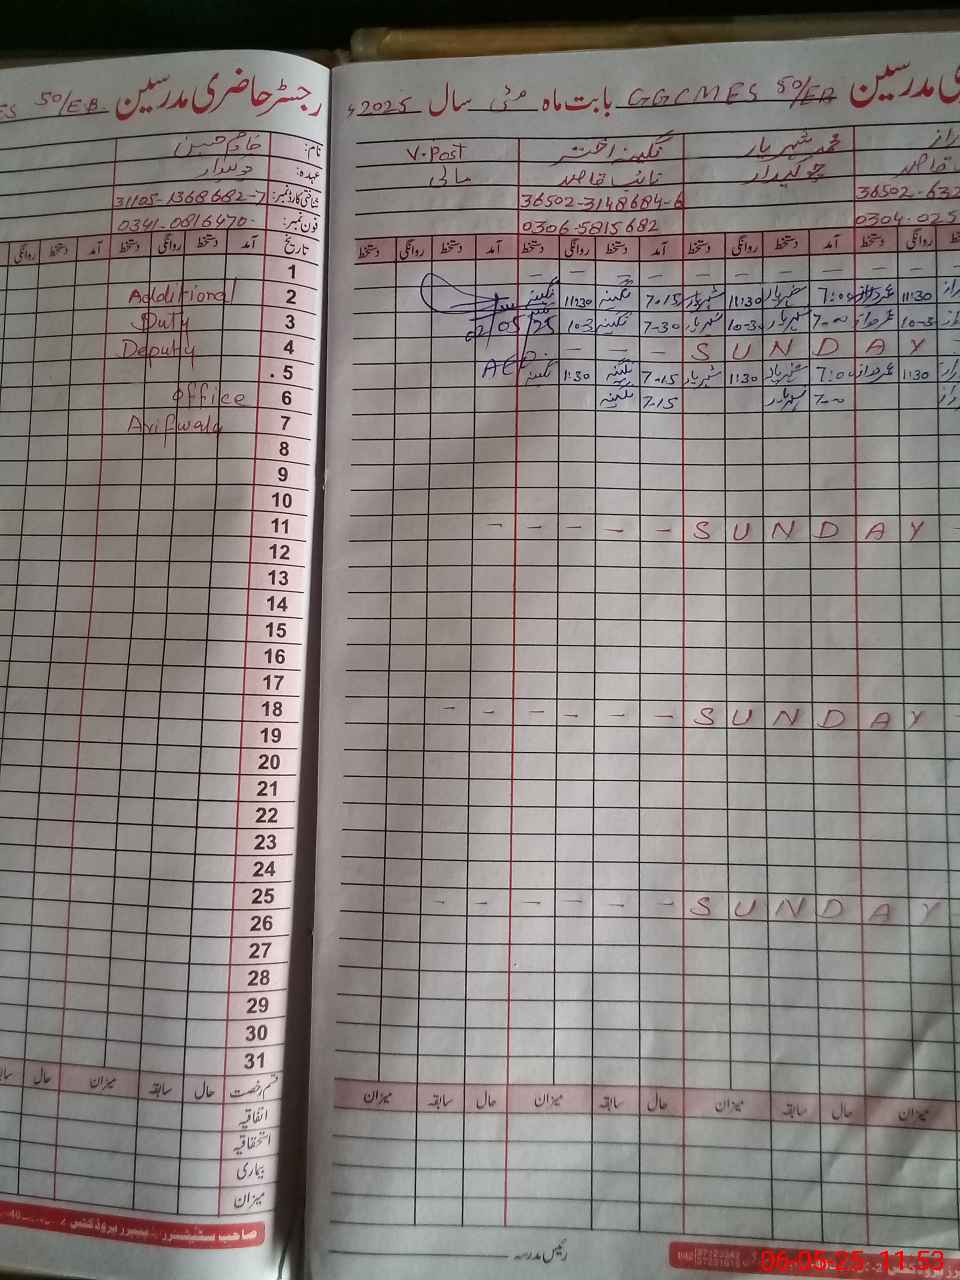 رجسٹر حاضری مدرسین 50/EB
نام: خادم حسین
عہدہ:
شناختی کارڈ نمبر: 31105-1368682-7
فون نمبر: 0341-0816470
تاریخ آمد دستخط روانگی دستخط آمد دستخط روانگی
1
2 Additional
3 Duty
4 Deputy
5
6 office
7 Arifwala
8
9
10
11
12
13
14
15
16
17
18
19
20
21
22
23
24
25
26
27
28
29
30
31
قسم رخصت حال سابقہ میزان حال
اتفاقیہ
استحقاقیہ
بیماری
میزان
مدرسین GGCMES 50/EB بابت ماہ مئی سال 2025ء
محمد شہریار نگینہ اختر V.Post
چوکیدار نائب قاصد مالی
36502-632 36502-3148684-6
0304-025 0306-5815682
دستخط روانگی دستخط آمد دستخط روانگی دستخط آمد دستخط روانگی دستخط آمد دستخط روانگی دستخط
11:30 شہریار 11:30 شہریار 7-15 نگینہ 11:30 نگینہ
7-00 شہریار 10-3 شہریار 7-30 نگینہ 10-3 02/05/25
SUNDAY
11:30 شہریار 11:30 شہریار 7-15 نگینہ 1:30 نگینہ AEO
7-00 شہریار 7-15 نگینہ
SUNDAY
SUNDAY
SUNDAY
میزان حال سابقہ میزان حال سابقہ میزان حال سابقہ میزان
رئیس مدرسہ
06-05-25 11:53